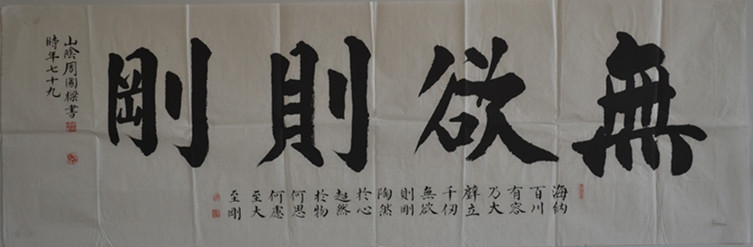 無欲則剛
海納
百川
有容
乃大
壁立
千仞
無欲
則剛
陶然
於心
超然
於物
何思
何慮
至大
至剛
山陰周國樑書
時年七十九